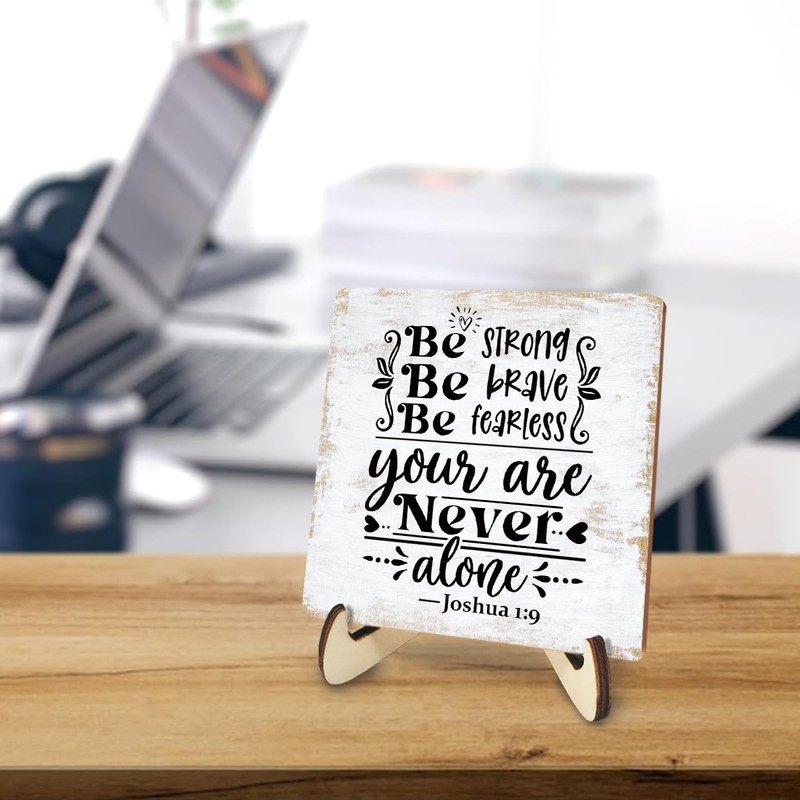 Be STRONG
Be bRAVE
Be feaRless
your are
Never
alone
—Joshua 1:9